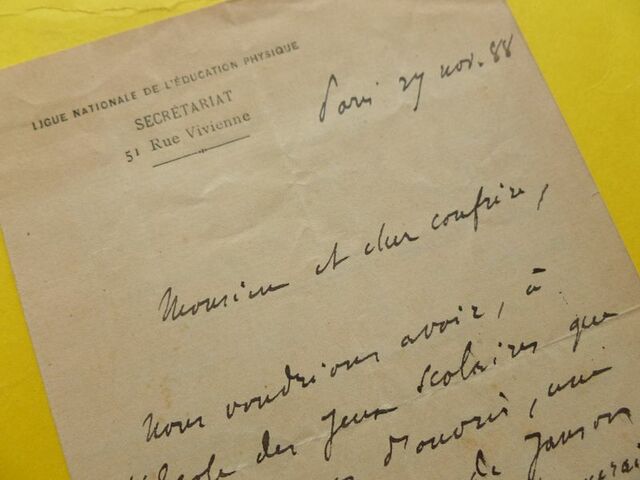 LIGUE NATIONALE DE L'ÉDUCATION PHYSIQUE
SECRÉTARIAT
51 Rue Vivienne
Paris 27 nov. 88
Monsieur et cher confrère,
Nous voudrions avoir, à
l'école des jeux scolaires que
d'ouvrir, une
de Janson